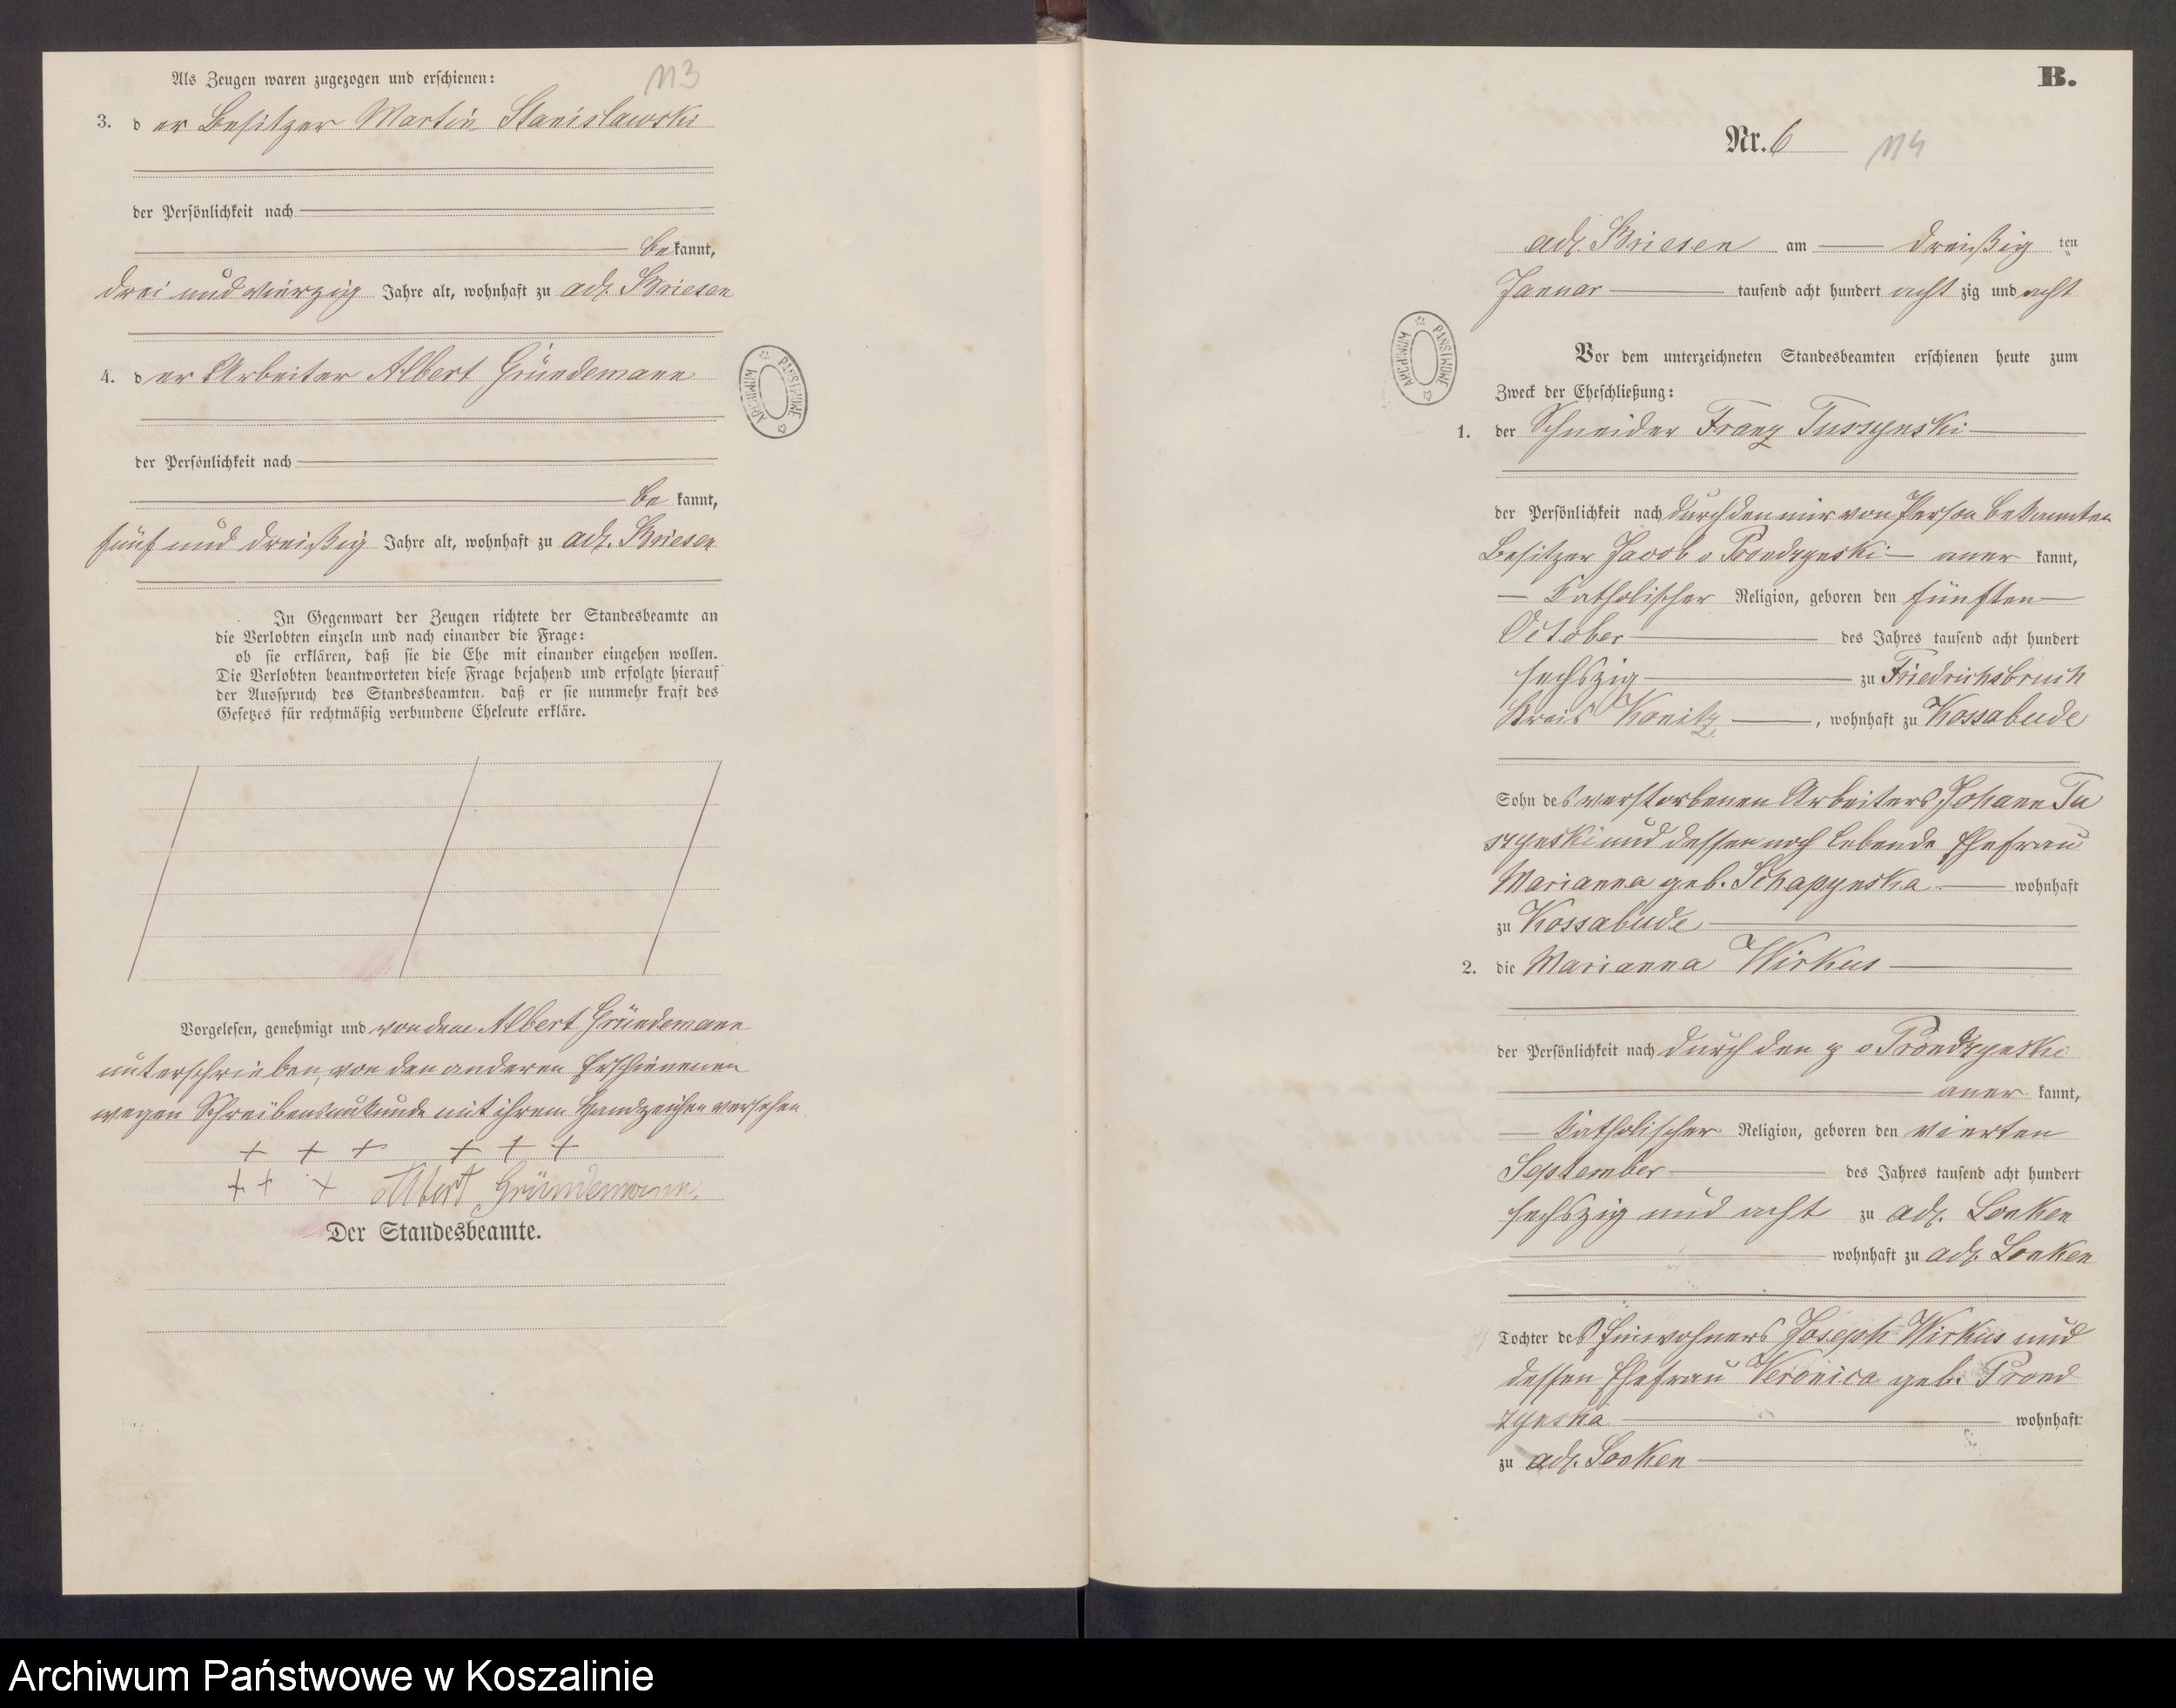 Als Zeugen waren zugezogen und erschienen:
113
3. der Besitzer Martin Stanislawski
der Persönlichkeit nach
bekannt,
drei und vierzig Jahre alt, wohnhaft zu adl. Briesen
4. der Arbeiter Albert Gründemann
der Persönlichkeit nach
be kannt,
fünf und dreißig Jahre alt, wohnhaft zu adl. Briesen
In Gegenwart der Zeugen richtete der Standesbeamte an
die Verlobten einzeln und nach einander die Frage:
ob sie erklären, daß sie die Ehe mit einander eingehen wollen.
Die Verlobten beantworteten diese Frage bejahend und erfolgte hierauf
der Ausspruch des Standesbeamten, daß er sie nunmehr kraft des
Gesetzes für rechtmäßig verbundene Eheleute erkläre.
Vorgelesen, genehmigt und von dem Albert Gründemann
unterschrieben, von den anderen Erschienenen
wegen Schreibensunkunde mit ihrem Handzeichen versehen
+ + + + + +
+ + + Albert Gründemann.
Der Standesbeamte.
ARCHIWUM PAŃSTWOWE
B.
Nr. 6
114
adl. Briesen am dreißig ten
Januar tausend acht hundert acht zig und acht
Vor dem unterzeichneten Standesbeamten erschienen heute zum
Zweck der Eheschließung:
1. der Schneider Franz Tuszynski
der Persönlichkeit nach durch den mir von Person bekannten
Besitzer Jacob v Prondzynski aner kannt,
katholischer Religion, geboren den fünften
October des Jahres tausend acht hundert
sechszig zu Friedrichsbruch
Kreis Konitz, wohnhaft zu Kossabude
Sohn des verstorbenen Arbeiters Johann Tu
szynski und dessen noch lebende Ehefrau
Marianna geb. wohnhaft
zu Kossabude
2. die Marianna Wirkus
der Persönlichkeit nach durch den p v Prondzynski
aner kannt,
katholischer Religion, geboren den vierten
September des Jahres tausend acht hundert
sechszig und acht zu adl. Lonken
wohnhaft zu adl. Lonken
Tochter des Einwohners Joseph Wirkus und
dessen Ehefrau Veronica geb. Prond
zynska wohnhaft
zu adl. Lonken
ARCHIWUM PAŃSTWOWE
Archiwum Państwowe w Koszalinie